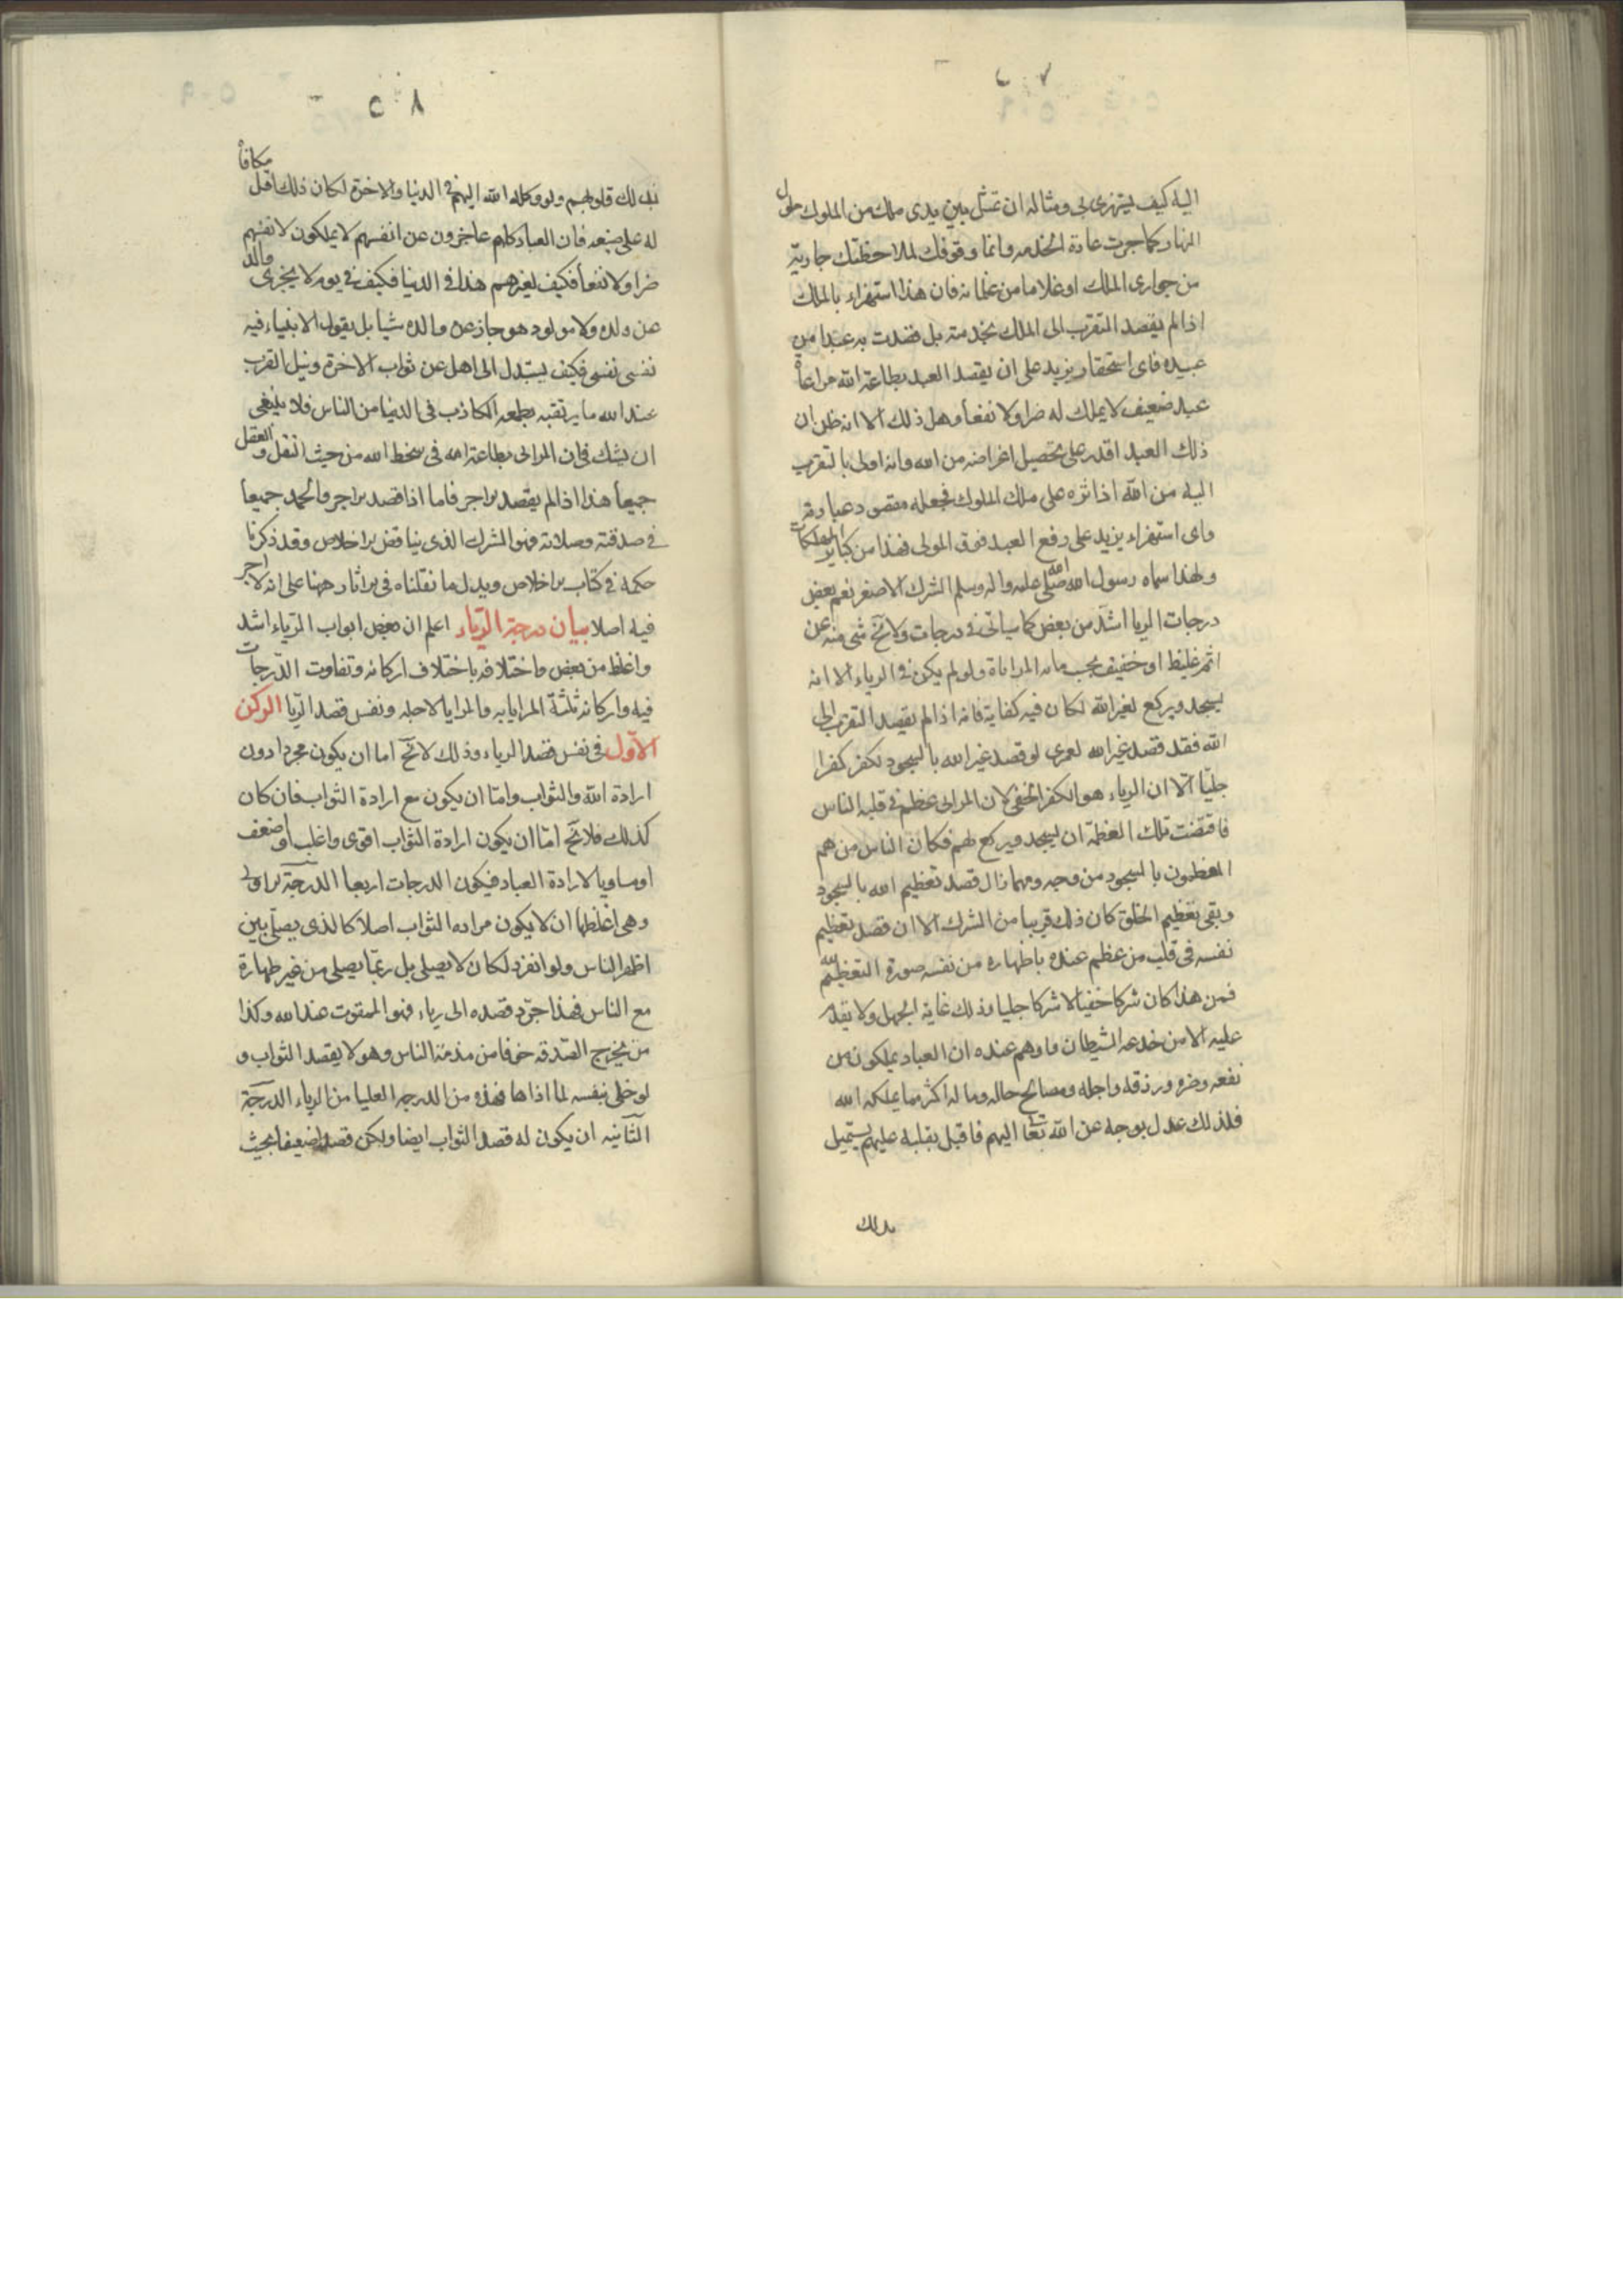 ٢٠٧
اليه كيف يستهزئ بى ومثاله ان تمثل بين يدى ملك من الملوك طول
النهار كما جرت عادة الخدمه وانما وقوفك لملاحظتك جارية
من جوارى الملك او غلاما من غلمانه فان هذا استهزاء بالملك
اذا لم يقصد التقرب الى الملك بخدمته بل قصدت به عبدا من
عبيده فاى استحقار يزيد على ان يقصد العبد بطاعة الله مراعاة
عبد ضعيف لا يملك له ضرا ولا نفعا وهل ذلك الا انه ظن ان
ذلك العبد اقدر على تحصيل اغراضه من الله وانه اولى بالتقرب
اليه من الله اذا ثره على ملك الملوك فجعله مقصود عبادته
واى استهزاء يزيد على رفع العبد فوق المولى فهذا من كباير المهلكات
ولهذا سماه رسول الله صلى الله عليه واله وسلم الشرك الاصغر نعم بعض
درجات الريا اشد من بعض كما سياتى فى درجات ولا يخ شى منه عن
اثم غليظ او خفيف بحسب ما به المراياة ولو لم يكن فى الرياء الا انه
يسجد ويركع لغير الله لكان فيه كفاية فانه اذا لم يقصد التقرب الى
الله فقد قصد غير الله لعمرى لو قصد غير الله بالسجود لكفر كفرا
جليّا الّا ان الرياء هو الكفر الخفى لان المرائى عظم فى قلبه الناس
فاقتضت تلك العظمة ان يسجد ويركع لهم فكان الناس من هم
المعظمون بالسجود من وجه ومهما زال قصد تعظيم الله بالسجود
وبقى تعظيم الخلق كان ذلك قريبا من الشرك الا ان قصد تعظيم
نفسه فى قلب من عظم عنده باظهاره من نفسه صورة التعظيم لله
فمن هذا كان شركا خفيا لا شركا جليا وذلك غاية الجهل ولا يقدم
عليه الا من خدعه الشيطان واوهم عنده ان العباد يملكون من
نفعه وضره ورزقه واجله ومصالح حاله وماله اكثر مما يملكه الله
فلذلك عدل بوجهه عن الله تعا اليهم فاقبل بقلبه عليهم يستميل
بذلك
٢٠٨
بذلك قلوبهم ولو وكله الله اليهم فى الدنيا والاخرة لكان ذلك اقل مكافاً
له على صنعه فان العباد كلهم عاجزون عن انفسهم لا يملكون لانفسهم
ضرا ولا نفعاً فكيف لغيرهم هذا فى الدنيا فكيف فى يوم لا يجزى والد
عن ولده ولا مولود هو جاز عن والده شيا بل يقول الانبياء فيه
نفسى نفسى فكيف يستبدل الجاهل عن ثواب الاخرة ونيل القرب
عند الله ما يرتقبه بطمعه الكاذب فى الدنيا من الناس فلا ينبغى
ان يشك فى ان المرائى بطاعة الله فى سخط الله من حيث النقل والعقل
جميعا هذا اذا لم يقصد الاجر فاما اذا قصد الاجر والحمد جميعا
فى صدقته وصلاته فهو الشرك الذى يناقض الاخلاص وقد ذكرنا
حكمه فى كتاب الاخلاص ويدل ما نقلناه فى الاثار ههنا على انه لا اجر
فيه اصلا بيان درجة الرّياء اعلم ان بعض ابواب الرّياء اشد
واغلظ من بعض واختلافه باختلاف اركانه وتفاوت الدّرجات
فيه واركانه ثلثة المرايا به والمرايا لاجله ونفس قصد الرّيا الركن
الاوّل فى نفس قصد الرياء وذلك لا يخ اما ان يكون مجردا دون
ارادة الله والثواب وامّا ان يكون مع ارادة الثواب فان كان
كذلك فلا يخ امّا ان يكون ارادة الثواب اقوى واغلب او ضعف
او مساويا لارادة العباد فيكون الدرجات اربعا الدرجة الاولى
وهى اغلظها ان لا يكون مراده الثواب اصلا كالذى يصلّى بين
اظهر الناس ولو انفرد لكان لا يصلى بل ربّما يصلى من غير طهارة
مع الناس فهذا جرّد قصده الى رياء فهو الممقوت عند الله وكذا
من يخرج الصّدقه خوفا من مذمّة الناس وهو لا يقصد الثواب و
لو خلى بنفسه لما اداها فهذه من الدرجه العليا من الرياء الدرجة
الثانيه ان يكون له قصد الثواب ايضا ولكن قصدا ضعيفا بحيث